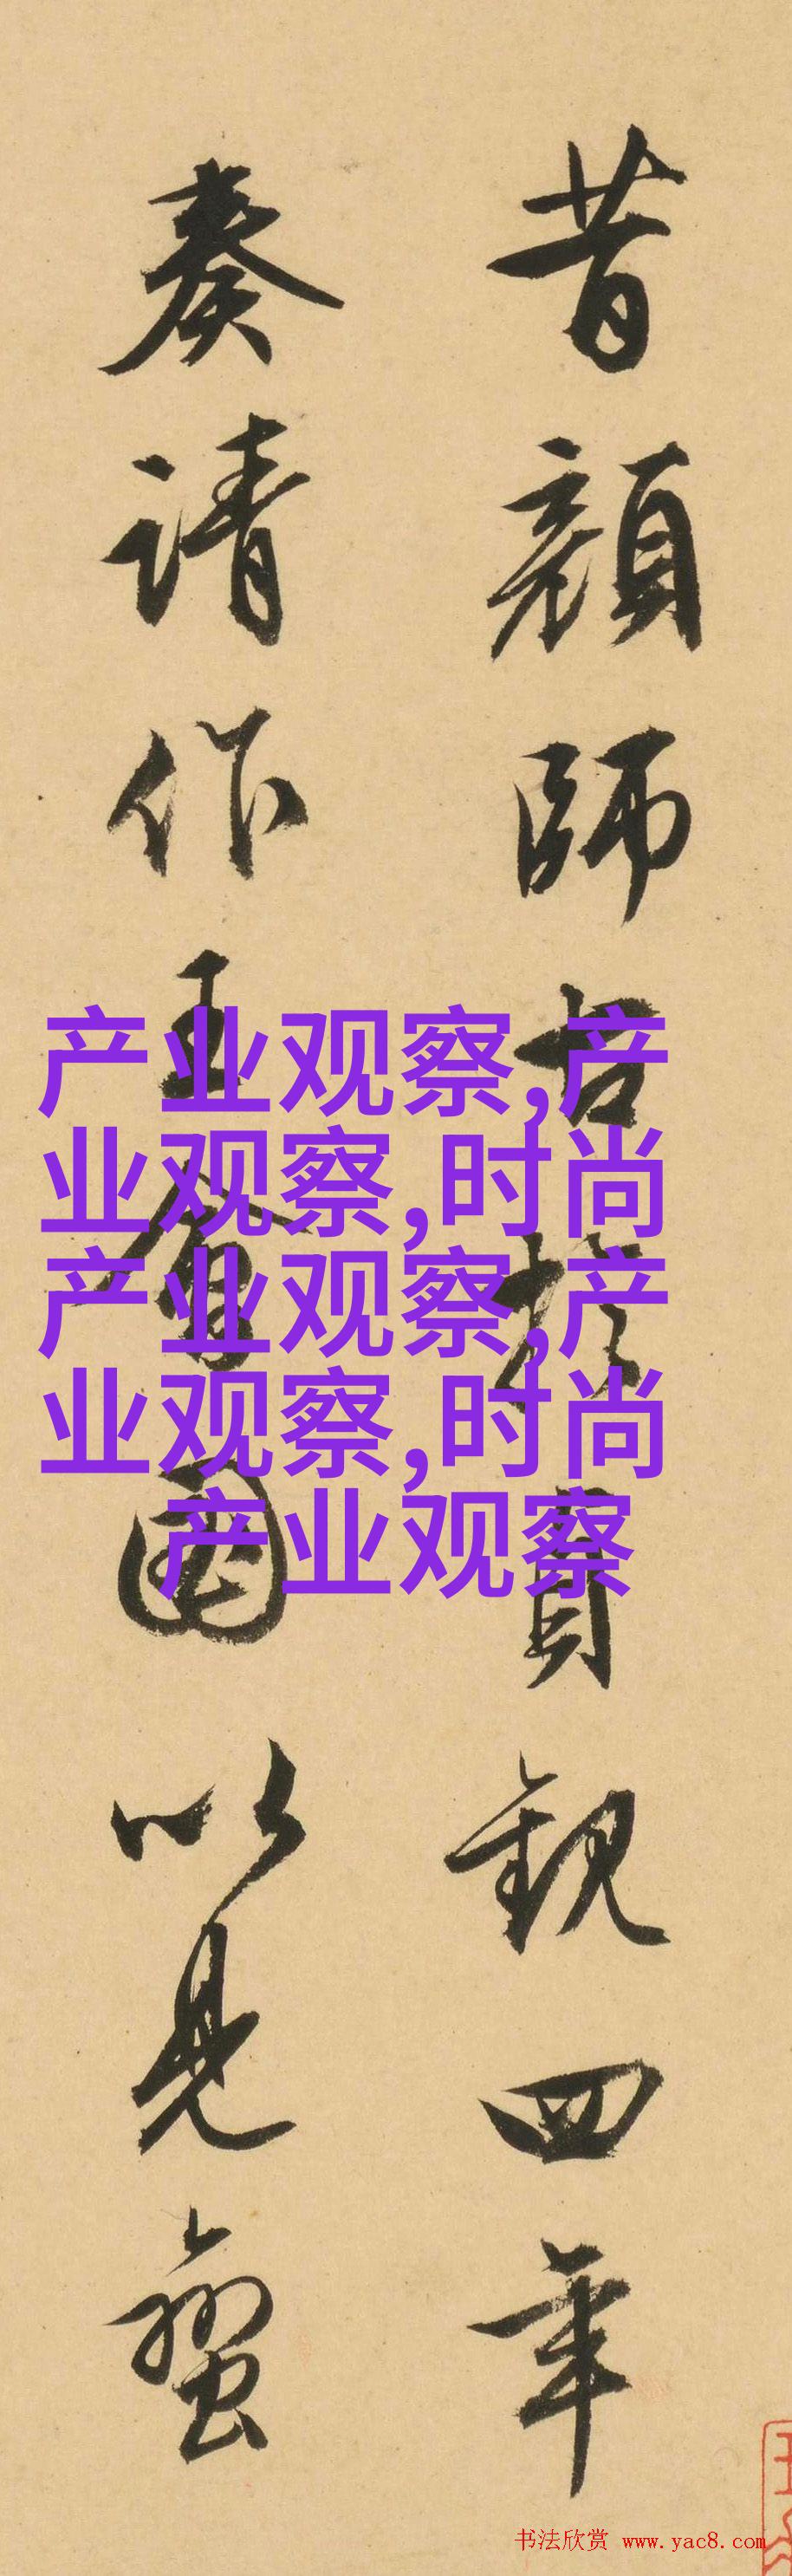 昔顔師古於貞觀四年
奏請作王會圖以見蠻
产业观察,产
业观察,时尚
产业观察,产
业观察,时尚
产业观察
书法欣赏 www.yac8.com